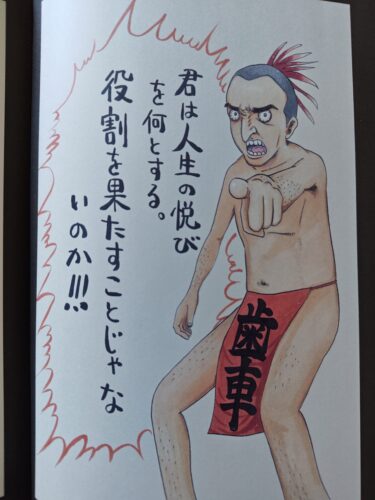 君は人生の悦び
を何とする。
役割を果たすことじゃな
いのか!!!
歯車